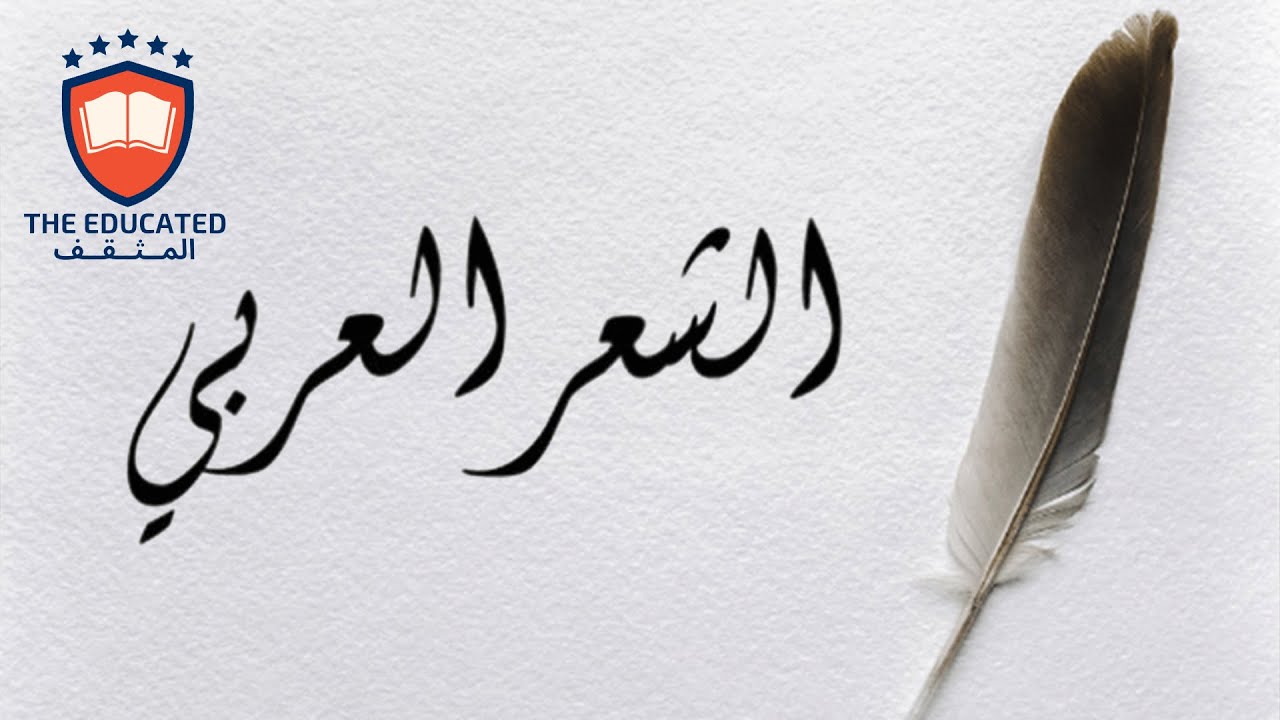 THE EDUCATED
المثقف
الشعر العربي